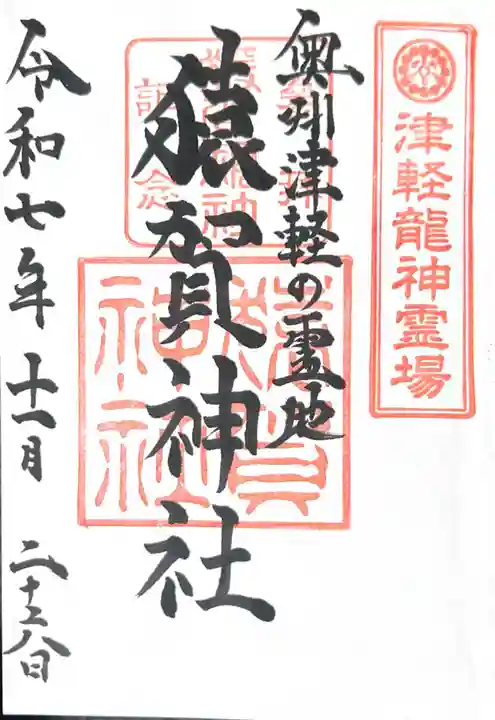 津軽龍神霊場
奥州津軽の霊地
猿賀神社
猿賀神社
記念
令和七年 十一月 二十八日